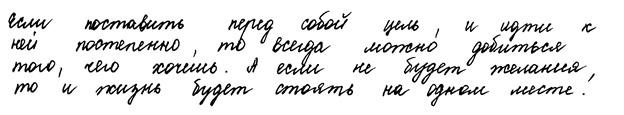 Если поставить перед собой цель, и идти к
ней постепенно, то всегда можно добиться
того, чего хочешь. А если не будет желания,
то и жизнь будет стоять на одном месте.